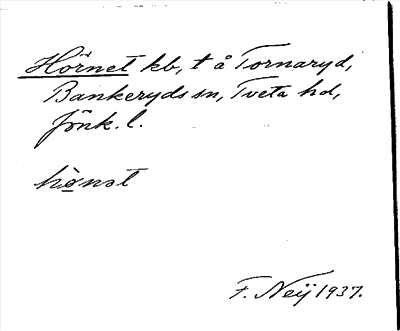 Hörnet kb, t å Tornaryd,
Bankeryds sn, Tveta hd,
Jönk. l.
hö̀nət
F. Neij 1937.